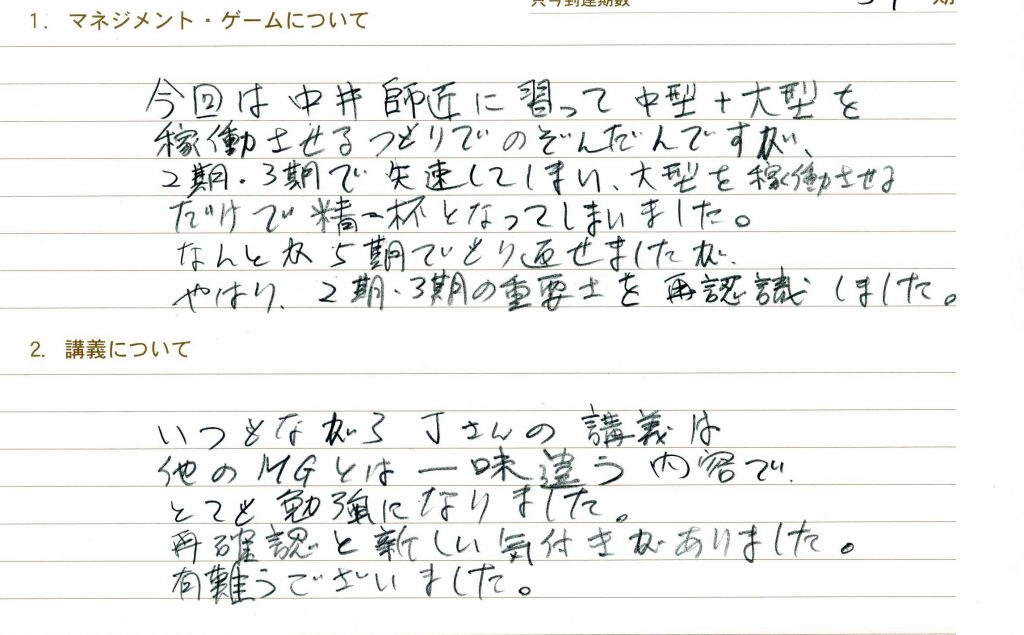 只今到達期数
期
1. マネジメント・ゲームについて
今回は中井師匠に習って中型+大型を
稼働させるつもりでのぞんだんですが、
2期・3期で失速してしまい、大型を稼働させる
だけで精一杯となってしまいました。
なんとか5期でとり返せましたが、
やはり、2期・3期の重要士を再認識しました。
2. 講義について
いつもながらJさんの講義は
他のMGとは一味違う内容で、
とても勉強になりました。
再確認と新しい気付きがありました。
有難うございました。